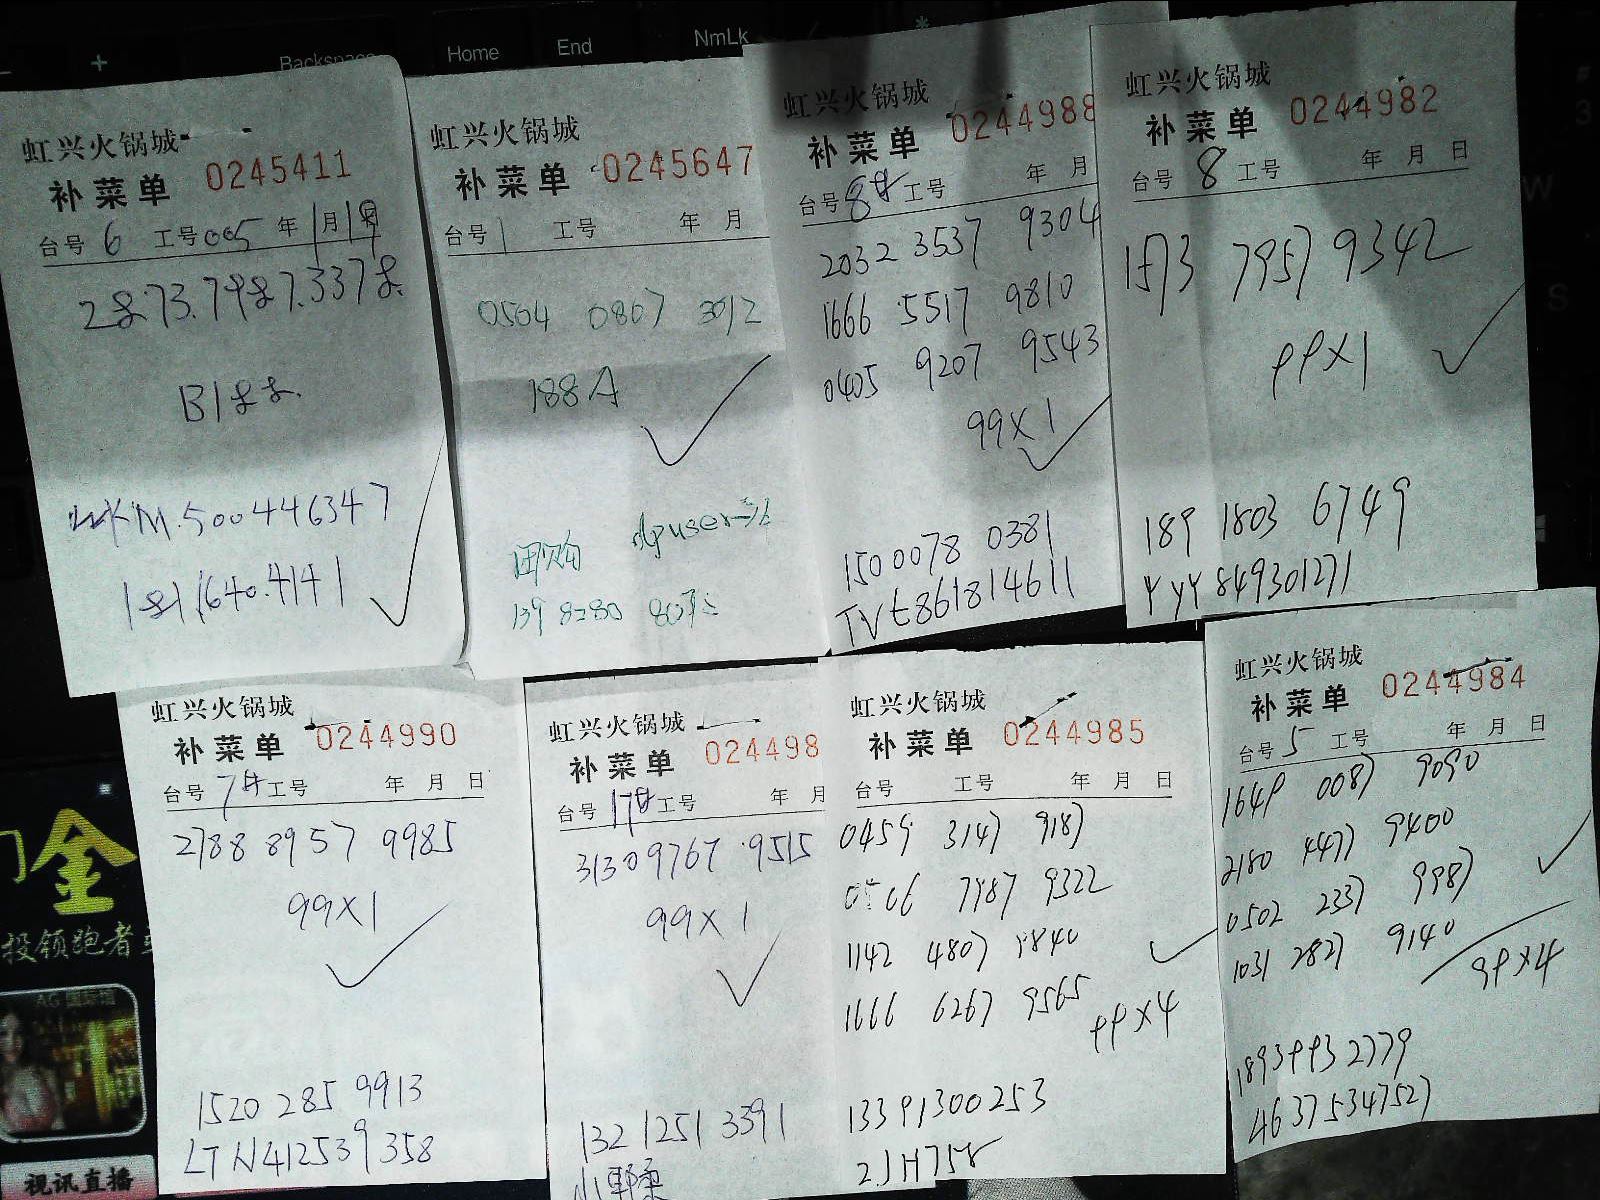 Backspace
Home
End
NmLk
虹兴火锅城
补菜单 0245411
台号 6 工号 005 年 1 月 19 日
虹兴火锅城
补菜单 0245647
台号 1 工号 年 月
0504 0807 3012
188A
团购
虹兴火锅城
补菜单 0244988
台号 8 工号 年 月
2032 3537 9304
1666 5517 9810
0405 9207 9543
99X1
150 0078 0381
TVt861814611
虹兴火锅城
补菜单 0244982
台号 8 工号 年 月 日
1573 7957 9342
99X1
189 1803 6749
YYY849301271
虹兴火锅城
补菜单 0244990
台号 7 工号 年 月 日
2788 8957 9985
99X1
1520 285 9913
LTN412539358
虹兴火锅城
补菜单 024498
台号 17 工号 年 月
3130 9767 9515
99X1
132 1251 3391
虹兴火锅城
补菜单 0244985
台号 工号 年 月 日
0459 3147 9187
7987 9322
1142 4807 9840
1666 6267 9565
99X4
13391300253
2JH758
虹兴火锅城
补菜单 0244984
台号 5 工号 年 月 日
1649 0087 9090
2180 4477 9400
0502 2337 9987
1031 2827 9140
99X4
18939932779
46375347527
金
投领跑者
AG 国际馆
视讯直播